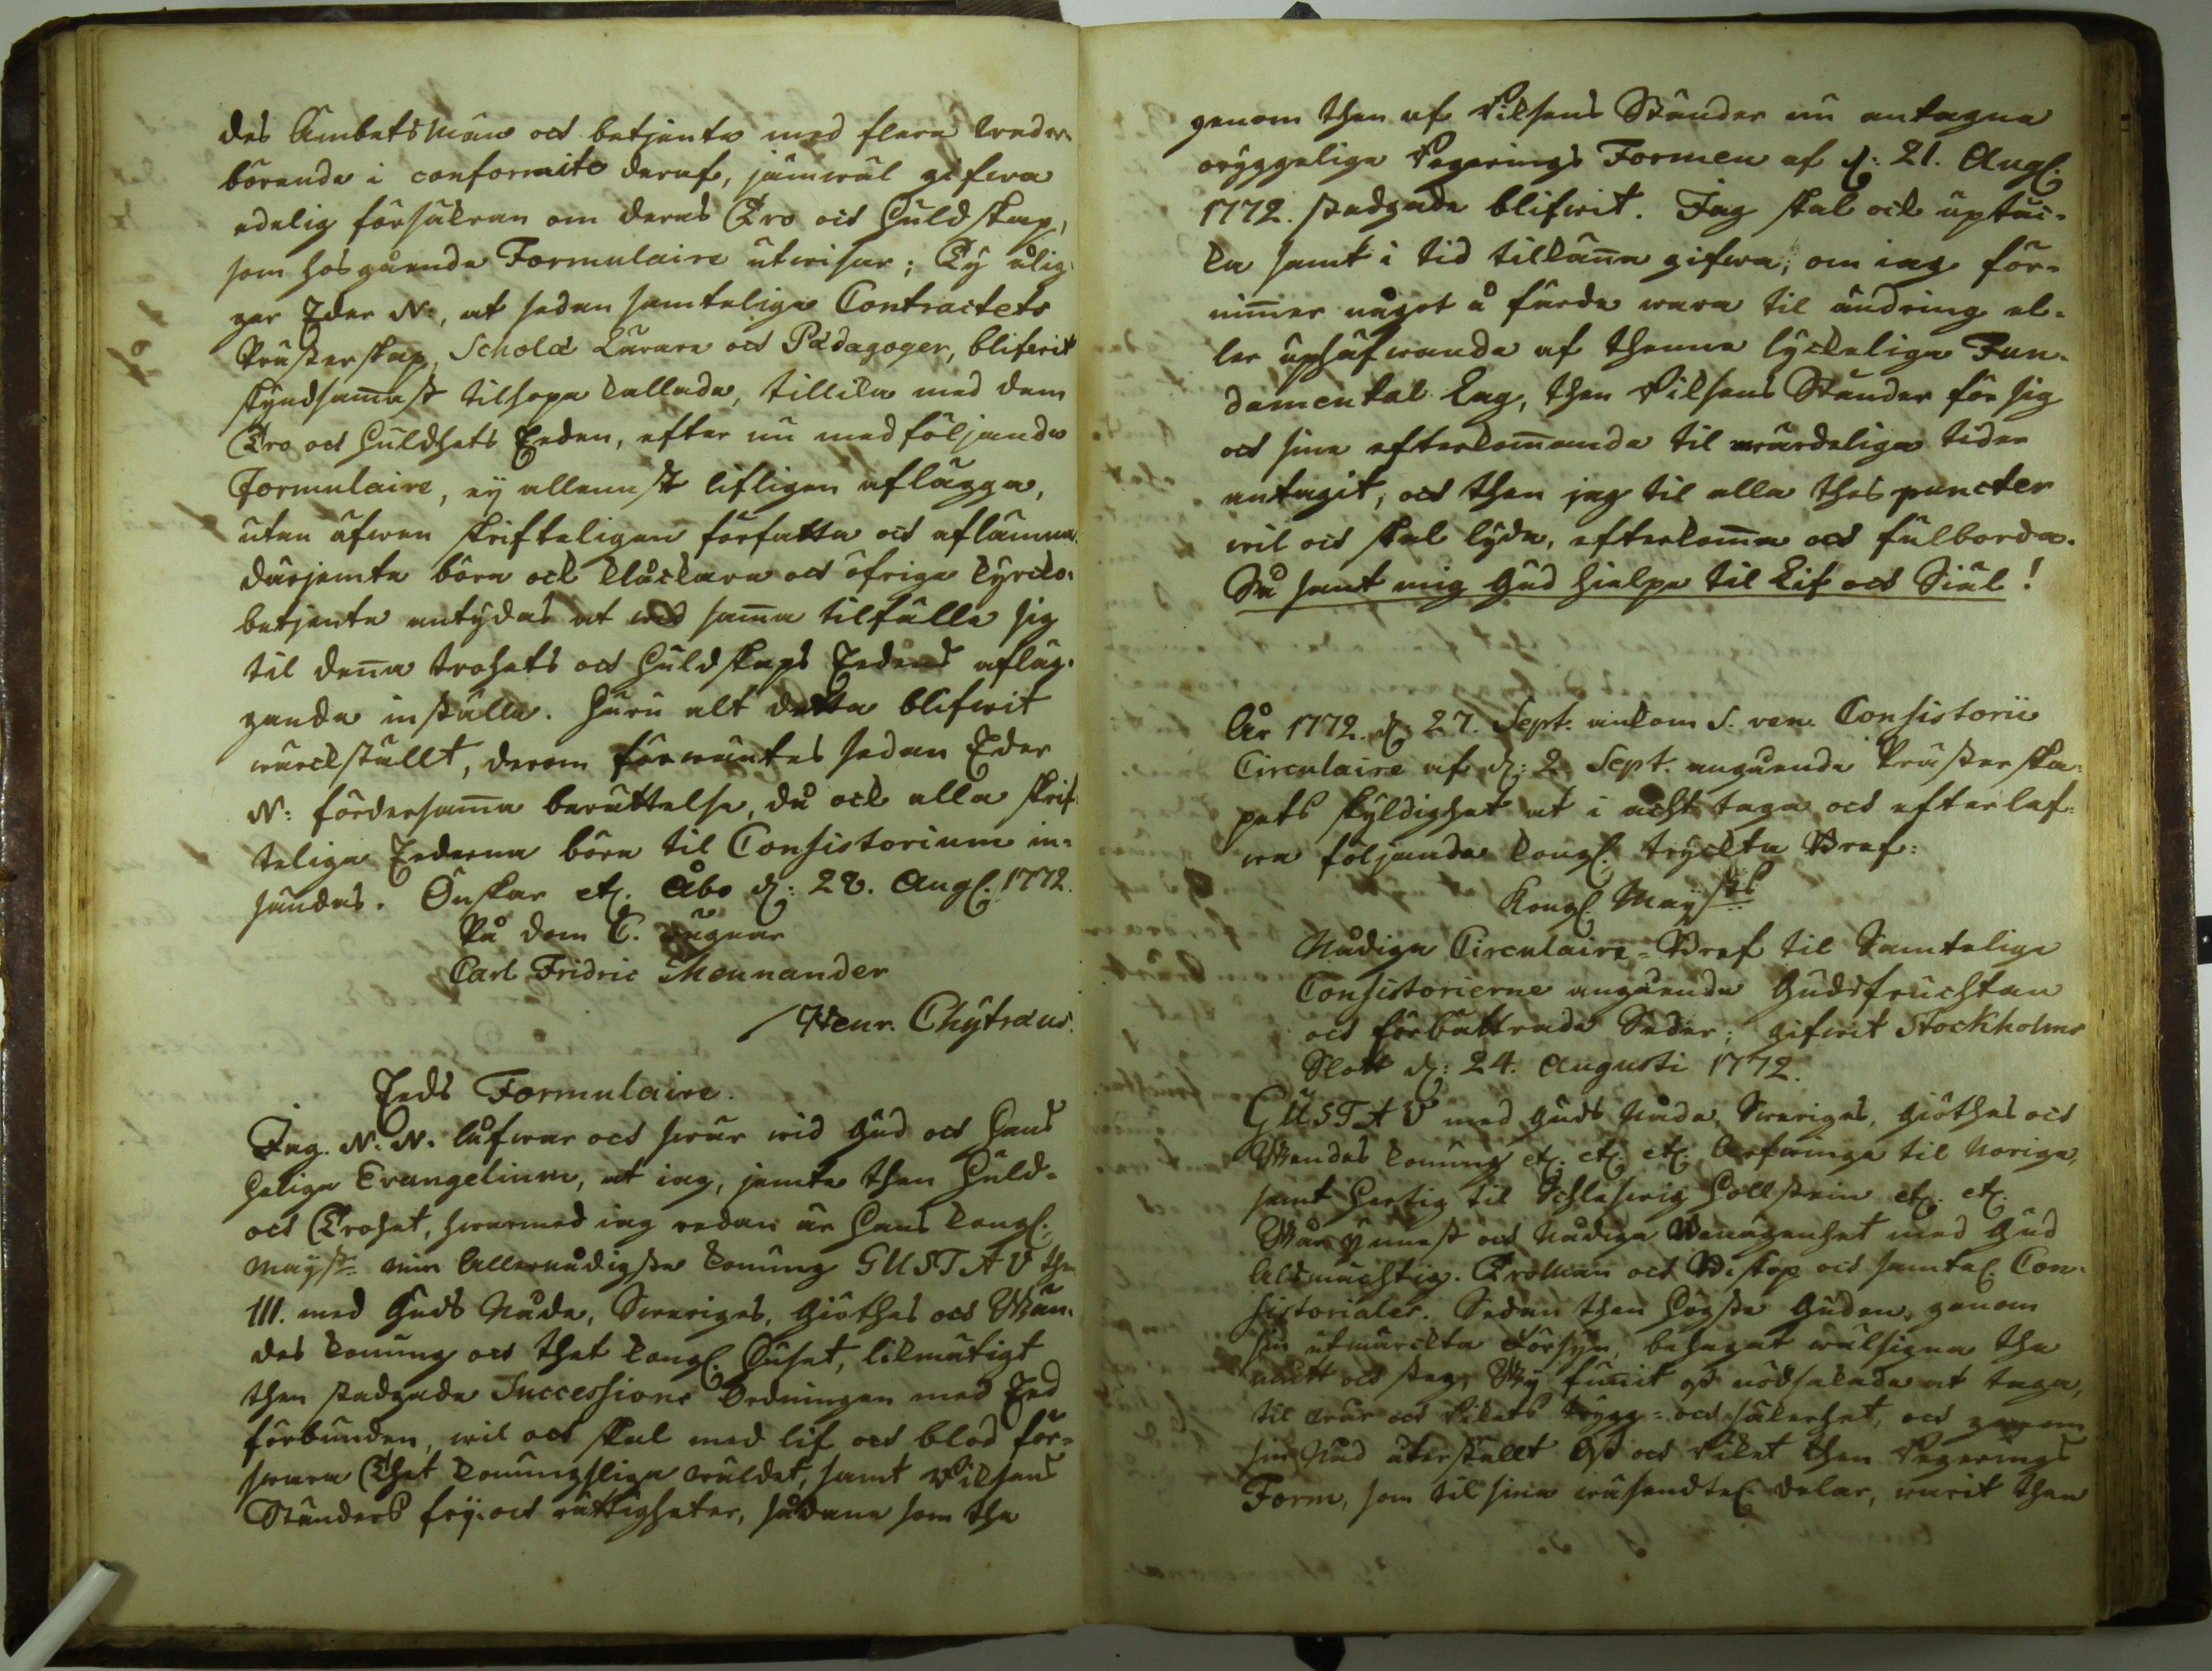 des Ämbetsmän och betjente med flera weder-
börande i conformité deraf, jämwäl gifwa
edelig försäkran om deras Tro och Huldskap,
som hosgående Formulaire utwisar; Ty ålig-
ger Eder N:, at sedan samtelige Contractets
Prästerskap, Scholæ Lärare och Pædagoger, blifwit
skyndsam̅ast tilhopa kallade, tillika med dem
Tro och Huldhets Eeden, efter nu medföljande
Formulaire, ey allenast lifligen aflägga,
utan äfwen skrifteligen författa och aflämna.
därjemte böra ock Klåckare och öfrige Kyrcko-
betjente antydas at wid sam̅a tilfälle sig
til den̅a trohets och Huldskaps Eedens afläg-
gande inställa. Huru alt detta blifwit
wärckställt, derom förwäntes sedan Eder
N: fördersam̅a berättelse, då ock alla skrif-
teliga Eederna böra til Consistorium in-
sändas. Önskar etc. Åbo d: 28. Aug. 1772.
På dom C. wägnar
Carl Fridric Mennander
Henr. Chytræus.
Eeds Formulaire.
Jag N. N. låfwar och swär wid Gud och Hans
Heliga Evangelium, at iag, jemte then Huld-
och Trohet, hwarmed iag redan är Hans Kongl.
May:st min Allernådigste Konung GUSTAV then
III. med Guds Nåde, Sweriges, Giöthes och Wän-
des Konung och thet Kongl. Huset, likmätigt
then stadgade Successions Ordningen med Eed
förbunden, wil och skal med lif och blod för-
swara Thet Konungsliga wäldet, samt Riksens
Ständers fry- och rättigheter, sådane som the
genom then af Riksens Ständer nu antagne
oryggelige Regerings Formen af d: 21. Aug.
1772. stadgade blifwit. Jag skal ock uptäc-
ka samt i tid tilkän̅a gifwa, om iag för-
nim̅er något å färde wara til ändring el-
ler uphäfwande af thenna lyckeliga Fun-
damental Lag, then Riksens Ständer för sig
och sine efterkom̅ande til wärdeliga tider
antagit, och then jag til alla thes puncter
wil och skal lyda, efterkom̅a och fulborda.
Så sant mig Gud hielpe til Lif och Siäl!
År 1772. d: 27. Sept. ankom S. ven. Consistorii
Circulaire af d: 2. Sept. angående Prästerska-
pets skyldighet at i acht taga och efterlef-
wa följande Kongl. tryckta Bref:
Kongl. May:sts
Nådiga Circulaire-Bref til Samtelige
Consistorierne angående Gudsfruchtan
och förbättrade Seder; gifwit Stockholms
Slott d: 24. Augusti 1772.
GUSTAV med Guds Nåde, Sweriges, Giöthes och
Wendes Konung etc. etc. etc. Arfwinge til Norige,
samt Hertig til Schleswig Hollstein etc. etc.
Wår ynnest och Nådiga Benägenhet med Gud
Aldmächtig. Troman och Biskop och samtel. Con-
sistorialer. Sedan then Högste Guden, genom
sin utmärckta Försyn, behagat wälsigna the
mått och steg, Wy fun̅it oss nödsakade at taga,
til wår och Rikets trygg- och säkerhet, och genom
sin Nåd återställt Oss och Riket then Regerings
Form, som til sine wäsendtel. delar, warit then